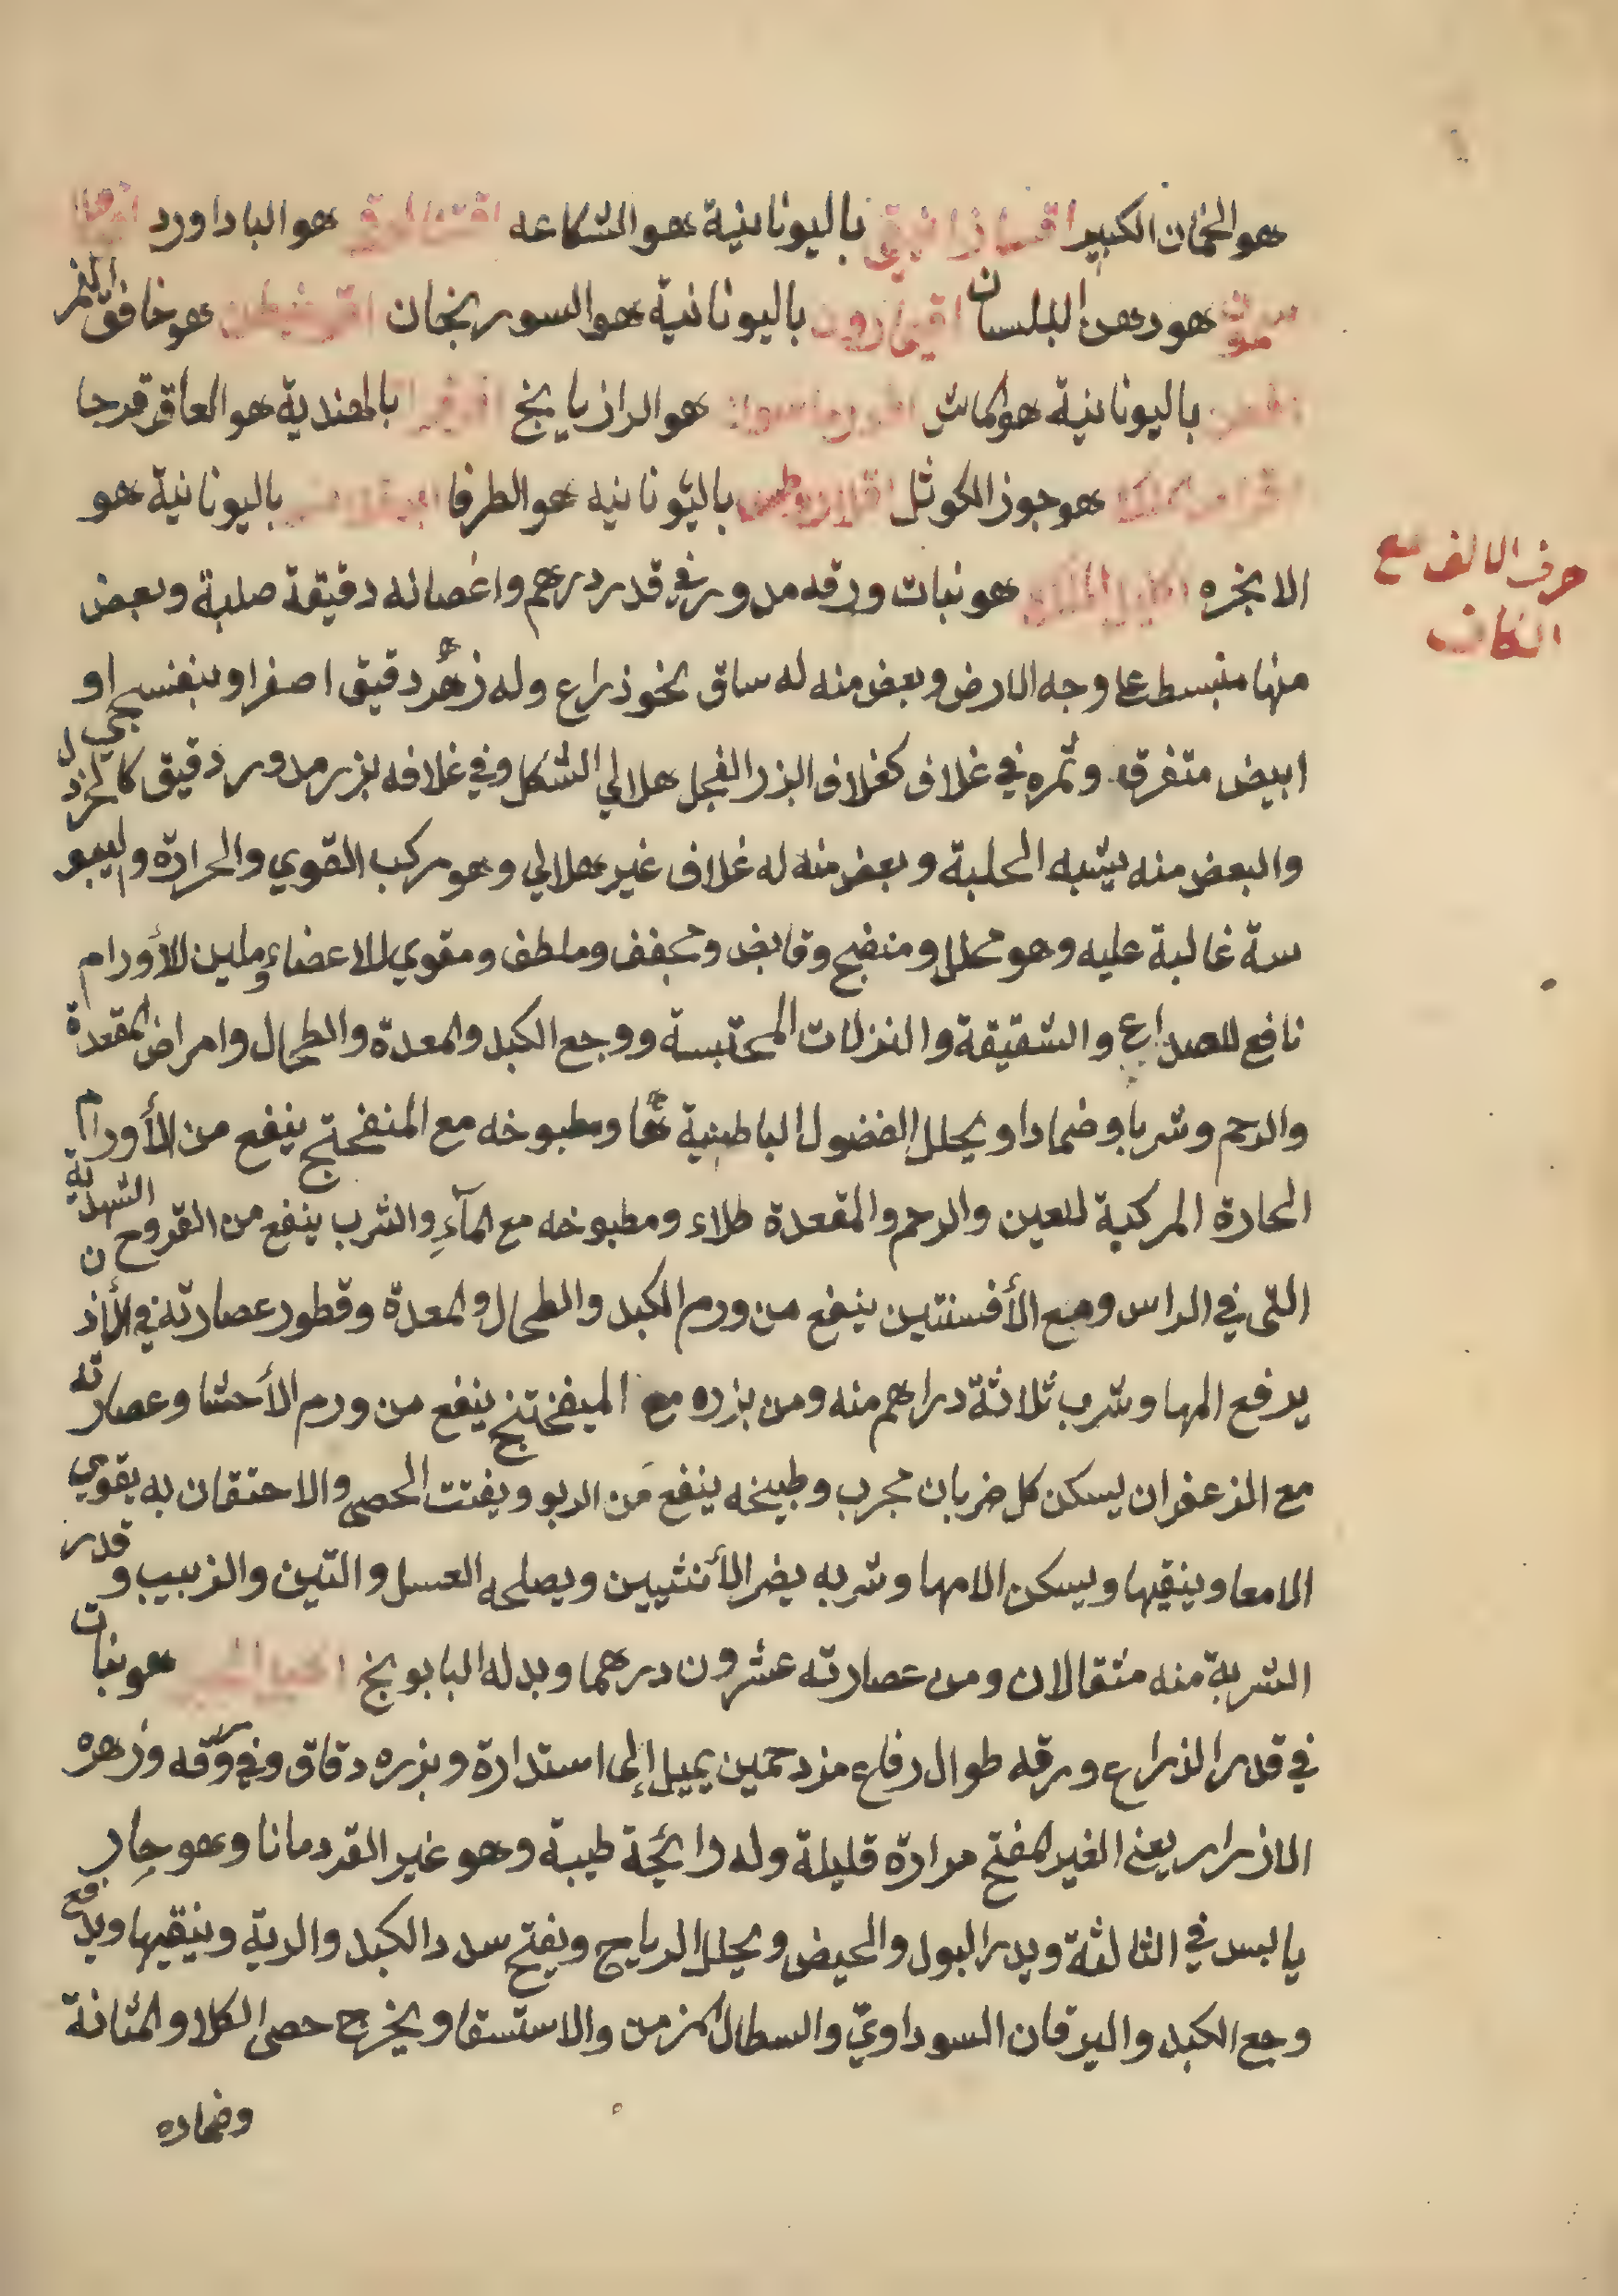 هو الخمان الكبير باليونانية هو الشكاعه هو الباداورد
هو دهن البلسان باليونانية هو السورنجان هو خافق النمر
باليونانية هو الماش هو الرازيانج بالهندية هو العاقرقرحا
هو جوز الكوثل باليونانيه هو الطرفا باليونانية هو
الانجره اكليل الملك هو نبات ورقه مدور في قدر درهم واغصانه دقيقة صلبة وبعض
منها منبسط على وجه الارض وبعض منه له ساق نحو ذراع وله زهر دقيق اصفر او بنفسجي او
ابيض متفرق وثمره في غلاف كغلاف البزر الفجل هلالي الشكل وفي غلافه بزر مدور دقيق كالخردل
والبعض منه يشبه الحلبة وبعض منه له غلاف غير هلالي وهو مركب القوي والحرارة واليبو
سة غالبة عليه وهو محلل ومنضج وقابض ومجفف وملطف ومقوي للاعضاء وملين للأورام
نافع للصداع والشقيقة والنزلات المحتبسة ووجع الكبد والمعدة والطحال وامراض المقعدة
والرحم وشربا وضمادا ويحلل الفضول الباطنية ومطبوخه مع المنفختج ينفع من الأورام
الحارة المركبة للعين والرحم والمقعدة طلاء ومطبوخه مع المآءِ والشرب ينفع من القروح الشهدية
التى في الراس ومع الأفسنتين ينفع من ورم الكبد والطحال والمعدة وقطور عصارته في الأذن
يرفع المها وشرب ثلاثة دراهم منه ومن بزره مع الميفختنج ينفع من ورم الأحشا وعصارته
مع الزعفران يسكن كل ضربان مجرب وطبيخه ينفع من الربو ويفتت الحصى والاحتقان به يقوي
الامعا وينقيها ويسكن الامها وشربه يضر الأنثيين ويصلحه العسل والتين والزبيب وقدر
الشربة منه مثقالان ومن عصارته عشرون درهما وبدله البابونج اكليل الجبل هو نبات
في قدر الذراع ورقه طوال رفاع مزدحمين يميل إلى استدارة وبزره دقاق وفي ورقه وزهره
الازرار يعني الغير المفتح مرارة قليلة وله رائحة طيبة وهو غير القردمانا وهو حار
يابس في الثالثة ويدر البول والحيض ويحلل الرياح ويفتح سدد الكبد والرية وينقيها ويدفع
وجع الكبد واليرقان السوداويّ والسطال المزمن والاستسقا ويخرج حصى الكلا والمثانة
وضماده
حرف الالف مع
الكاف